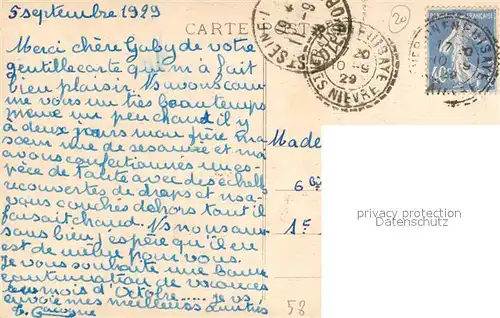 5 septembre 1929
CARTE POST
Merci chère Gaby de votre
gentille carte qui m'a fait
bien plaisir. Ns avons com
me vous un très beau temps
même un peu chaud il y
à deux jours mon frère ma
soeur une de ses amies et moi
avons confectionnés un es
pèce de tante avec des échell
recouvertes de draps et ns a
vous couchés dehors tout il
faisait chaud. Ns nous am
sans bien j'espère qu'il en
est de même pour vous.
Je vous souhaite une bonne
continuation de vacances
bons mois d'Octobre..... Je vs
envoie mes meilleurs amitiés
Made
6
1
NIEVRE
29
40
20
58
privacy protection
Datenschutz